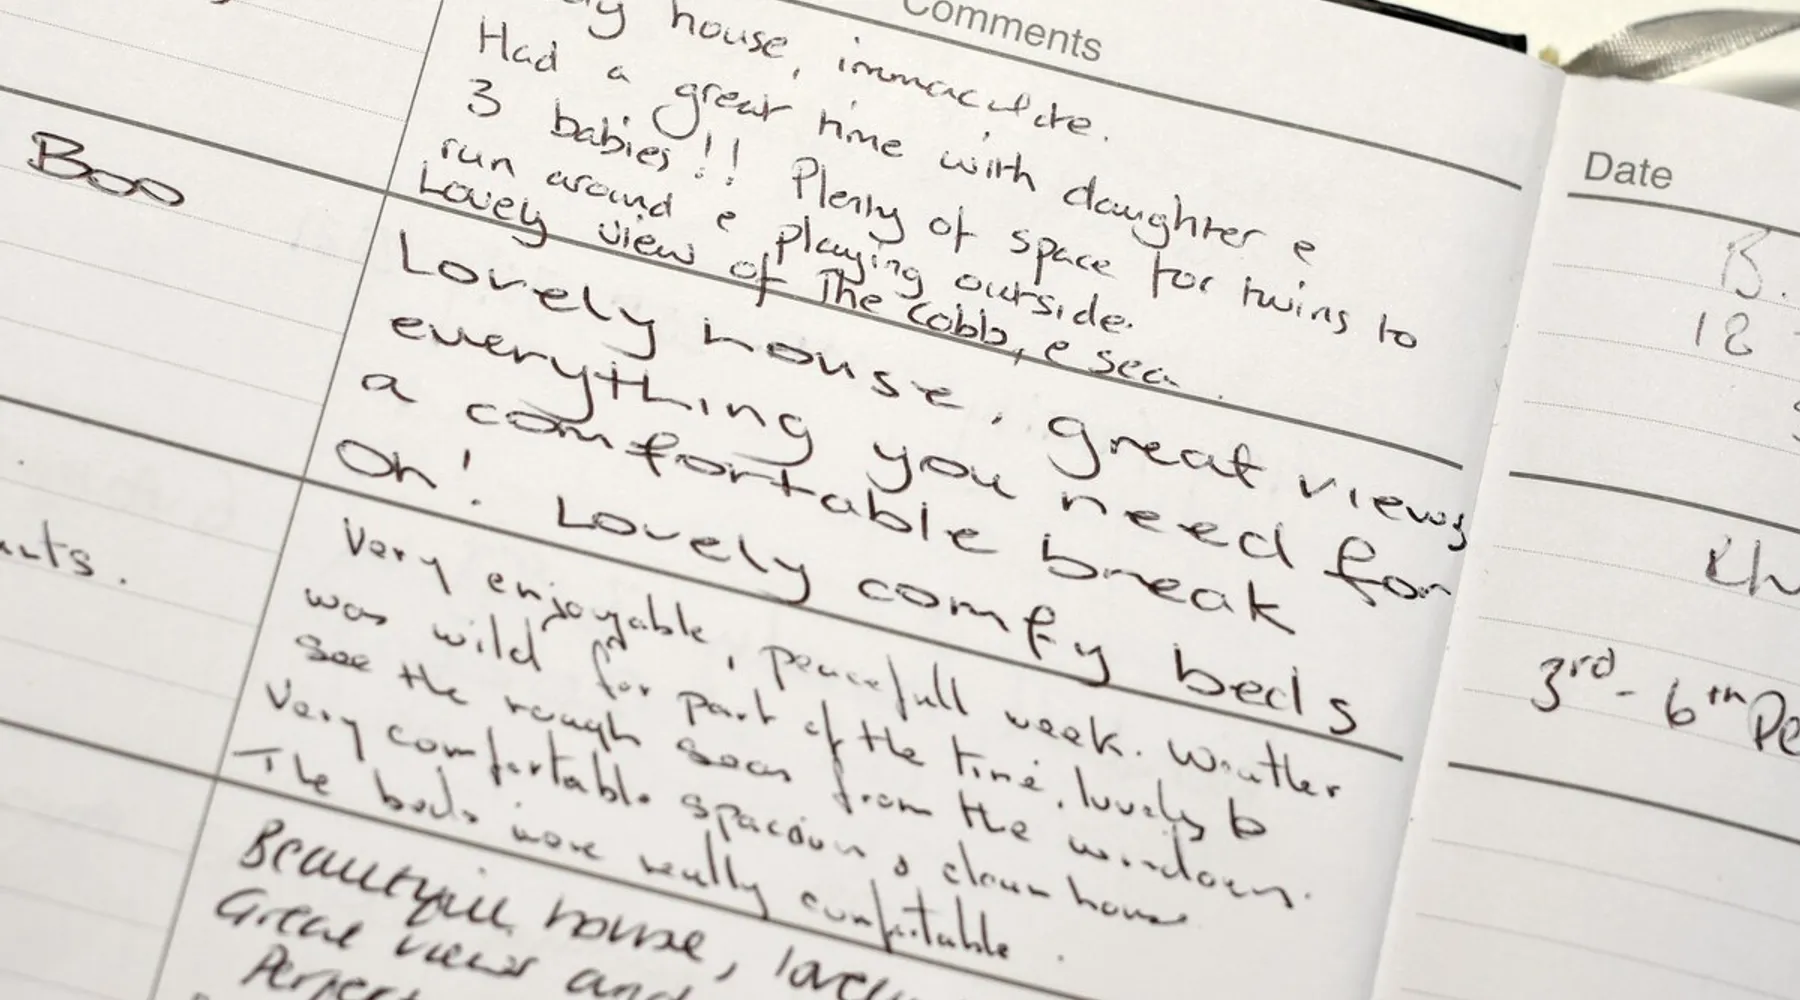 Comments
house, immaculate.
Had a great time with daughter e
3 babies!! Plenty of space for twins to
run around e playing outside.
Lovely view of The Cobb, e sea.
Boo
Lovely house, great views
everything you need for
a comfortable break
Oh! Lovely comfy beds
Very enjoyable, peacefull week. Weather
was wild for part of the time, lovely to
see the rough seas from the windows.
Very comfortable spacious & clean house
The beds were really comfortable.
Beautiful house, lovely
Great views and
Perfect
Date
B.
18
3rd - 6th De